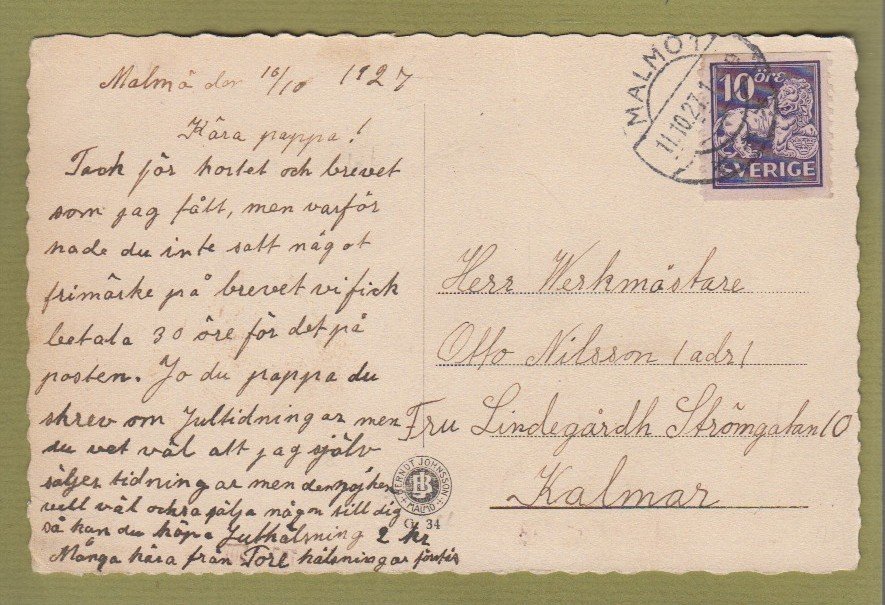 Malmö den 10/10 1927
Kära pappa!
Tack för kortet och brevet
som jag fått, men varför
hade du inte satt något
frimärke på brevet vi fick
betala 30 öre för det på
posten. Jo du pappa du
skrev om Jultidningar men
du vet väl att jag själv
säljer tidningar men den
vill väl också sälja någon till dig
så kan du köpa Julhälsning 2 kr
Många kära från Tore hälsningar
MALMÖ 1
11.10.27.-1
10 öre
SVERIGE
Herr Werkmästare
Otto Nilsson (adr)
Fru Lindegårdh Strömgatan 10
Kalmar
BERNDT JOHNSSON
MALMÖ
G. 34